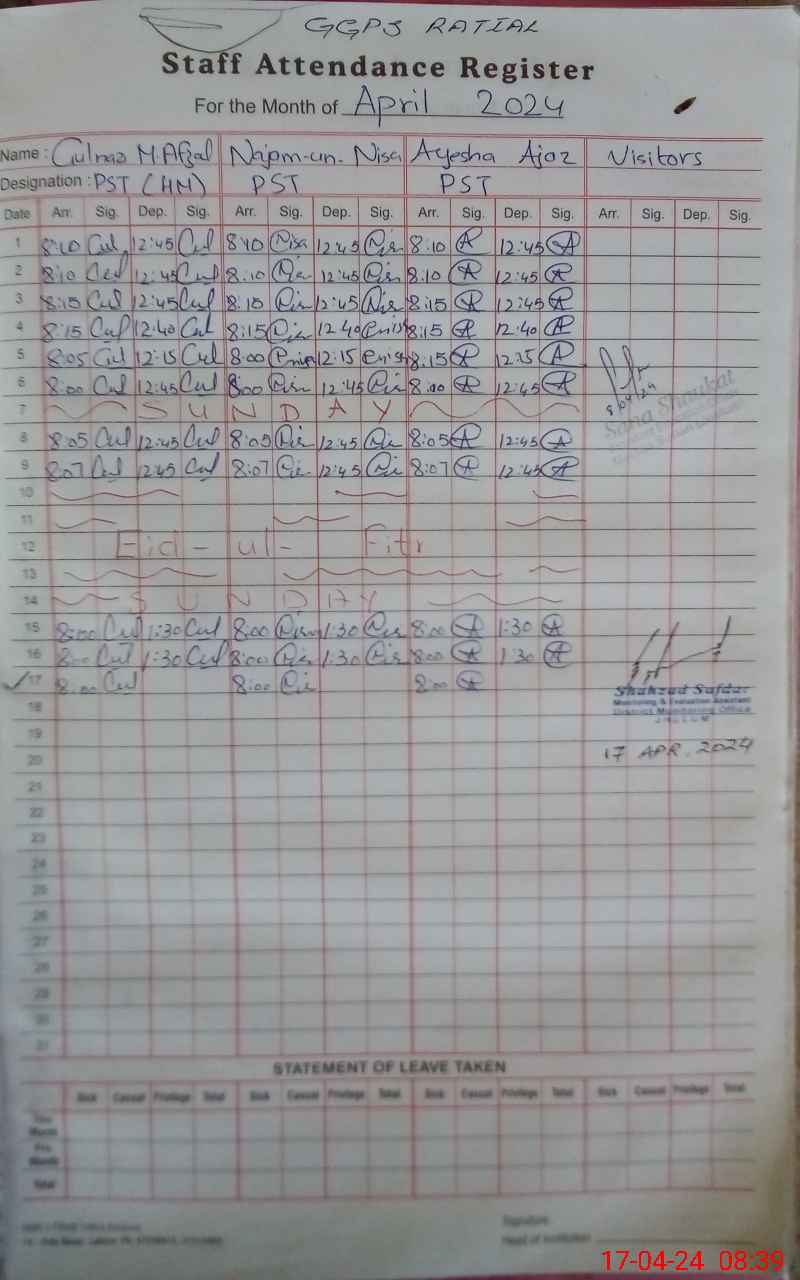 GGPS RATIAL
Staff Attendance Register
For the Month of April 2024
Name : Gulnaz M.Afzal Najam-un-Nisa Ayesha Ajaz Visitors
Designation : PST (HM) PST PST
Date Arr. Sig. Dep. Sig. Arr. Sig. Dep. Sig. Arr. Sig. Dep. Sig. Arr. Sig. Dep. Sig.
1 8:10 Gul 12:45 Gul 8:10 Nisa 12:45 Nis 8:10 A 12:45 A
2 8:10 Gul 12:45 Gul 8:10 Nis 12:45 Nis 8:10 A 12:45 A
3 8:15 Gul 12:45 Gul 8:15 Nis 12:45 Nis 8:15 A 12:45 A
4 8:15 Gul 12:40 Gul 8:15 Nis 12:40 8:15 A 12:40 A
5 8:05 Gul 12:15 Gul 8:00 12:15 8:15 A A
6 8:00 Gul 12:45 Gul 8:00 Nis 12:45 Nis 8:00 A 12:45 A
8/04/24
7 SUNDAY
Sana Shaukat
8 8:05 Gul 12:45 Gul 8:05 Nis 12:45 Nis 8:05 A 12:45 A
9 8:07 Gul 12:45 Gul 8:07 Nis 12:45 Nis 8:07 A 12:45 A
10
11
12 Eid-ul-Fitr
13
14 SUNDAY
15 8:00 Gul 1:30 Gul 8:00 Nis 1:30 Nis 8:00 A 1:30 A
16 8:00 Gul 1:30 Gul 8:00 Nis 1:30 Nis 8:00 A 1:30 A
17 8:00 Gul 8:00 Nis 8:00 A
Shahzad Safdar
Monitoring & Evaluation Assistant
18
District Monitoring Office
JHELUM
19
20 17 APR. 2024
21
22
23
24
25
26
27
28
29
30
31
STATEMENT OF LEAVE TAKEN
Sick Casual Privilege Total Sick Casual Privilege Total Sick Casual Privilege Total Sick Casual Privilege Total
Month
Month
Total
Signature
Head of Institution
17-04-24 08:39